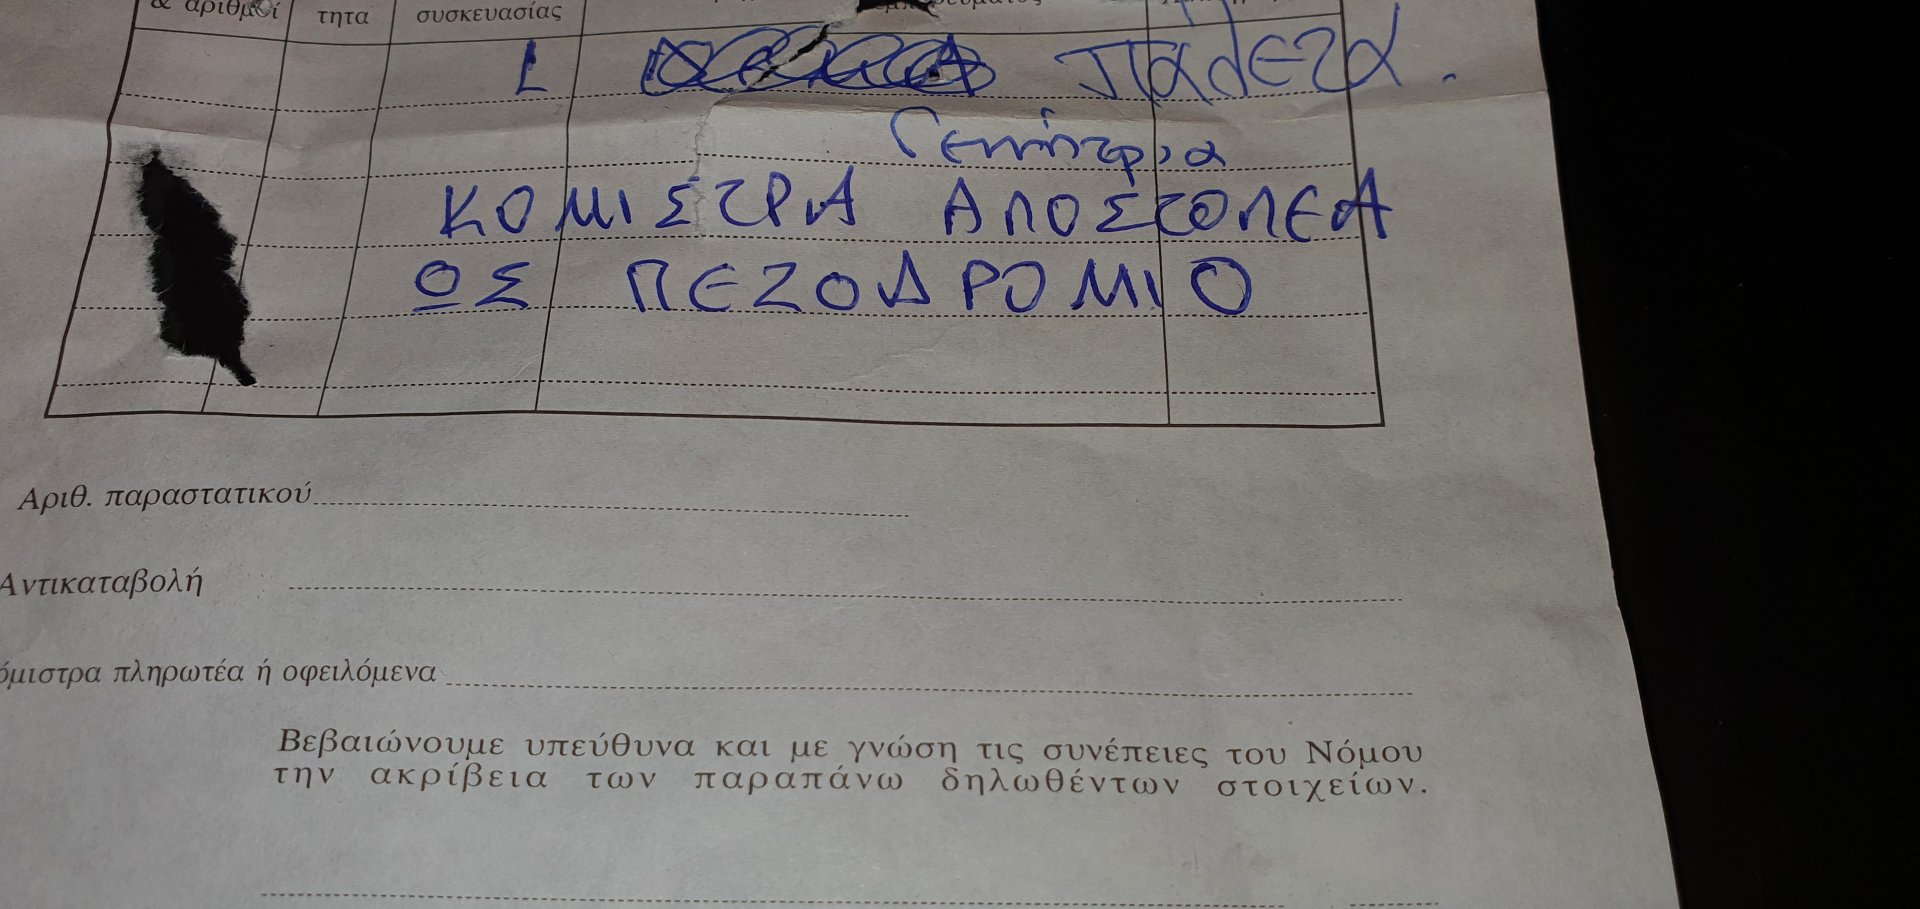 & αριθμοί τητα συσκευασίας
1 παλετα.
Γεννήτρια
ΚΟΜΙΣΤΡΑ ΑΠΟΣΤΟΛΕΑ
ΩΣ ΠΕΖΟΔΡΟΜΙΟ
Αριθ. παραστατικού
Αντικαταβολή
όμιστρα πληρωτέα ή οφειλόμενα
Βεβαιώνουμε υπεύθυνα και με γνώση τις συνέπειες του Νόμου
την ακρίβεια των παραπάνω δηλωθέντων στοιχείων.